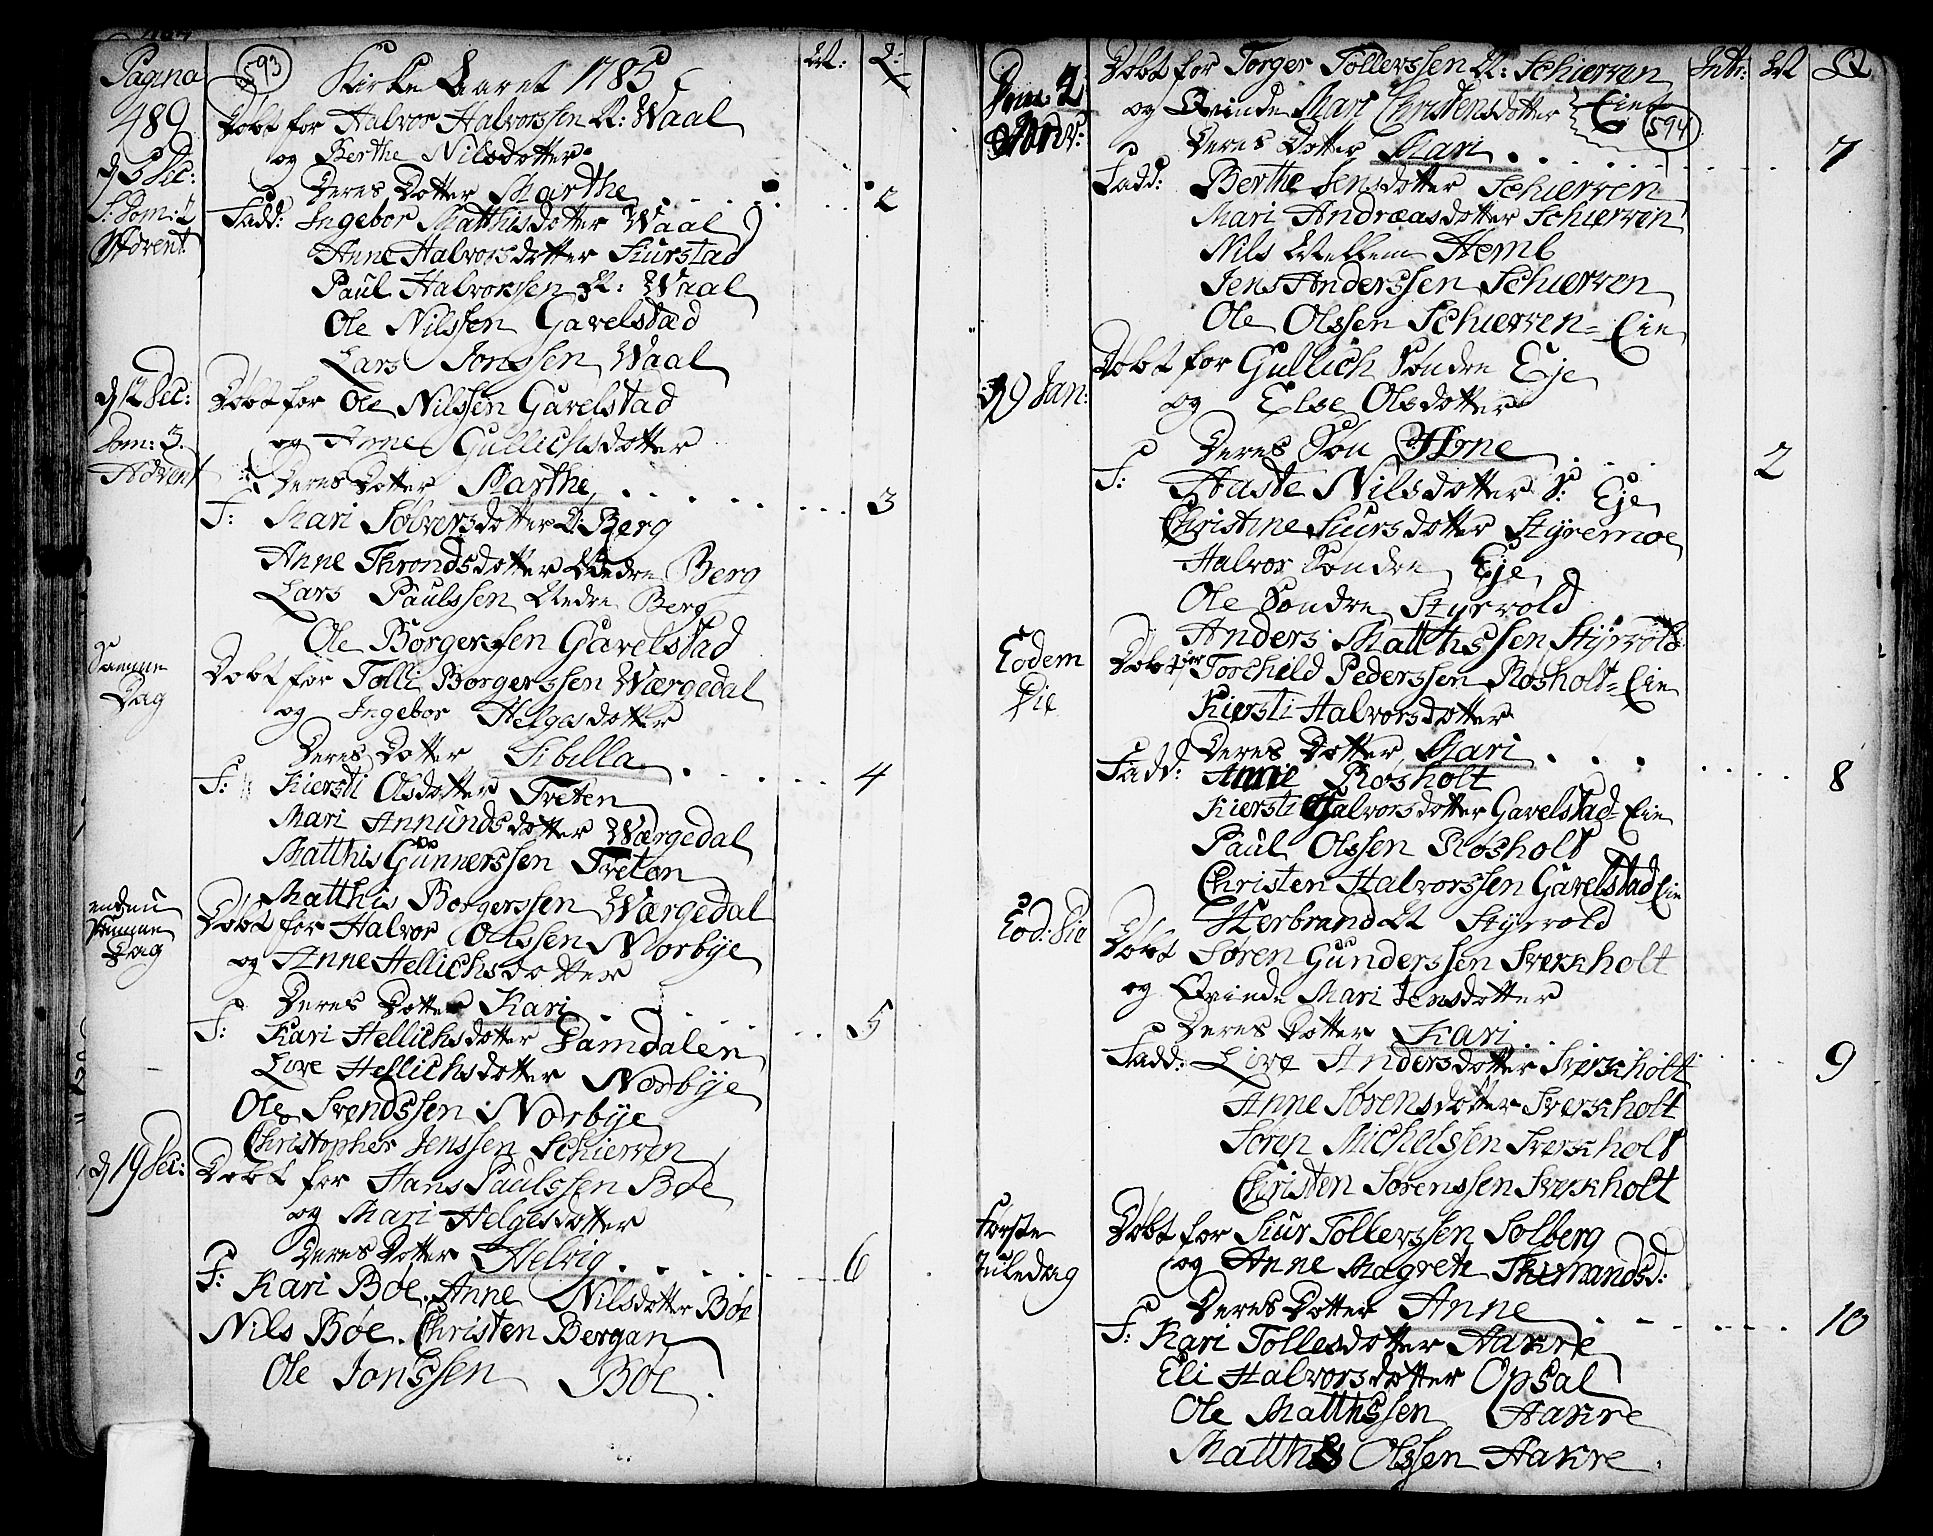 Pagina
489
593
Kirke Aaret 1785
d 5 Dec:
S: Dom: 2
Advent
Døbt for Halvor Halvorssen N: Waal
og Berthe Nilsdotter
Deres Dotter Marthe 2
Fadd: Ingebor Matthisdotter Waal
Anne Halvorsdotter Kurstad
Paul Halvorssen N: Waal
Ole Nilssen Gavelstad
Lars Jonssen Waal
d 12 Dec:
Dom: 3.
Advent
Døbt for Ole Nilssen Gavelstad
og Anne Gullichsdotter
Deres Dotter Marthe 3
F: Mari Sølversdotter N Berg
Anne Throndsdotter Nedre Berg
Lars Paulssen Nedre Berg
Ole Borgerssen Gavelstad
Samme
Dag
Døbt for Tolli Borgerssen Wærgedal
og Ingebor Helgesdotter
Deres Dotter Sibilla 4
F: Kiersti Olsdotter Treten
Mari Annundsdotter Wærgedal
Matthis Gunnerssen Treten
Matthis Borgerssen Wærgedal
endnu
Samme
Dag
Døbt for Halvor Olssen Norbye
og Anne Hellichsdotter
Deres Dotter Kari 5
F: Kari Hellichsdotter Damdalen
Live Hellichsdotter Norbye
Ole Svendssen Norbye
Christopher Jenssen Schierven
d 19 Dec:
Døbt for Hans Paulssen Boe
og Mari Helgesdotter
Deres Dotter Helvig 6
F: Kari Boe. Anne Nilsdotter Bøe
Nils Bøe. Christen Bergan
Ole Jonssen Boe.
Dom: 2
Advt:
Døbt for Torger Tollerssen N: Schierven
og Qvinde Mari Christensdotter Eie
594
Deres Dotter Mari 7
Fadd: Berthe Jensdotter Schierven
Mari Andreasdotter Schierven
Nils Mellem Hemb
Jens Anderssen Schierven
Ole Olssen Schierven=Eie
d 9 Jan:
Døbt for Gullich Søndre Eje
og Else Olsdotter
Deres Søn Arne 2
F: Aaste Nilsdotter S: Eje
Christine Sjursdotter Styremoe
Halvor Søndre Eje
Ole Søndre Styrvold
Anders Matthissen Styrvold
Eodem
Die
Døbt for Torchild Pederssen Rosholt=Eie
Kiersti Halvorsdotter
Deres Dotter Mari 8
Fadd: Anne Rosholt
Kiersti Halvorsdotter Gavelstad=Eie
Paul Olssen Rosholt
Christen Halvorssen Gavelstad Eie
Herbrand N Styrvold
Eod: Die
Døbt Søren Gunderssen Sverkholt
og Qvinde Mari Jensdotter
Deres Dotter Kari 9
Fadd: Live Andersdotter Sverkholt
Anne Sørensdotter Sverkholt
Søren Michelssen Sverkholt
Christen Sørenssen Sverkholt
Første
Juledag
Døbt for Siur Tollerssen Solberg
og Anne Magrete
Deres Dotter Anne 10
F: Kari Tollesdotter Aakre
Eli Halvorsdotter Opsal
Ole Matthissen Aakre
Matthis Olssen Aakre.